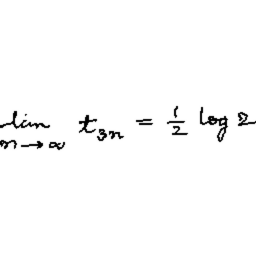 lim_{n→∞} t_{3n} = 1/2 log 2